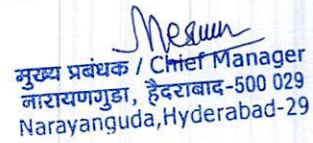 मुख्य प्रबंधक / Chief Manager
नारायणगुडा, हैदराबाद-500 029
Narayanguda,Hyderabad-29